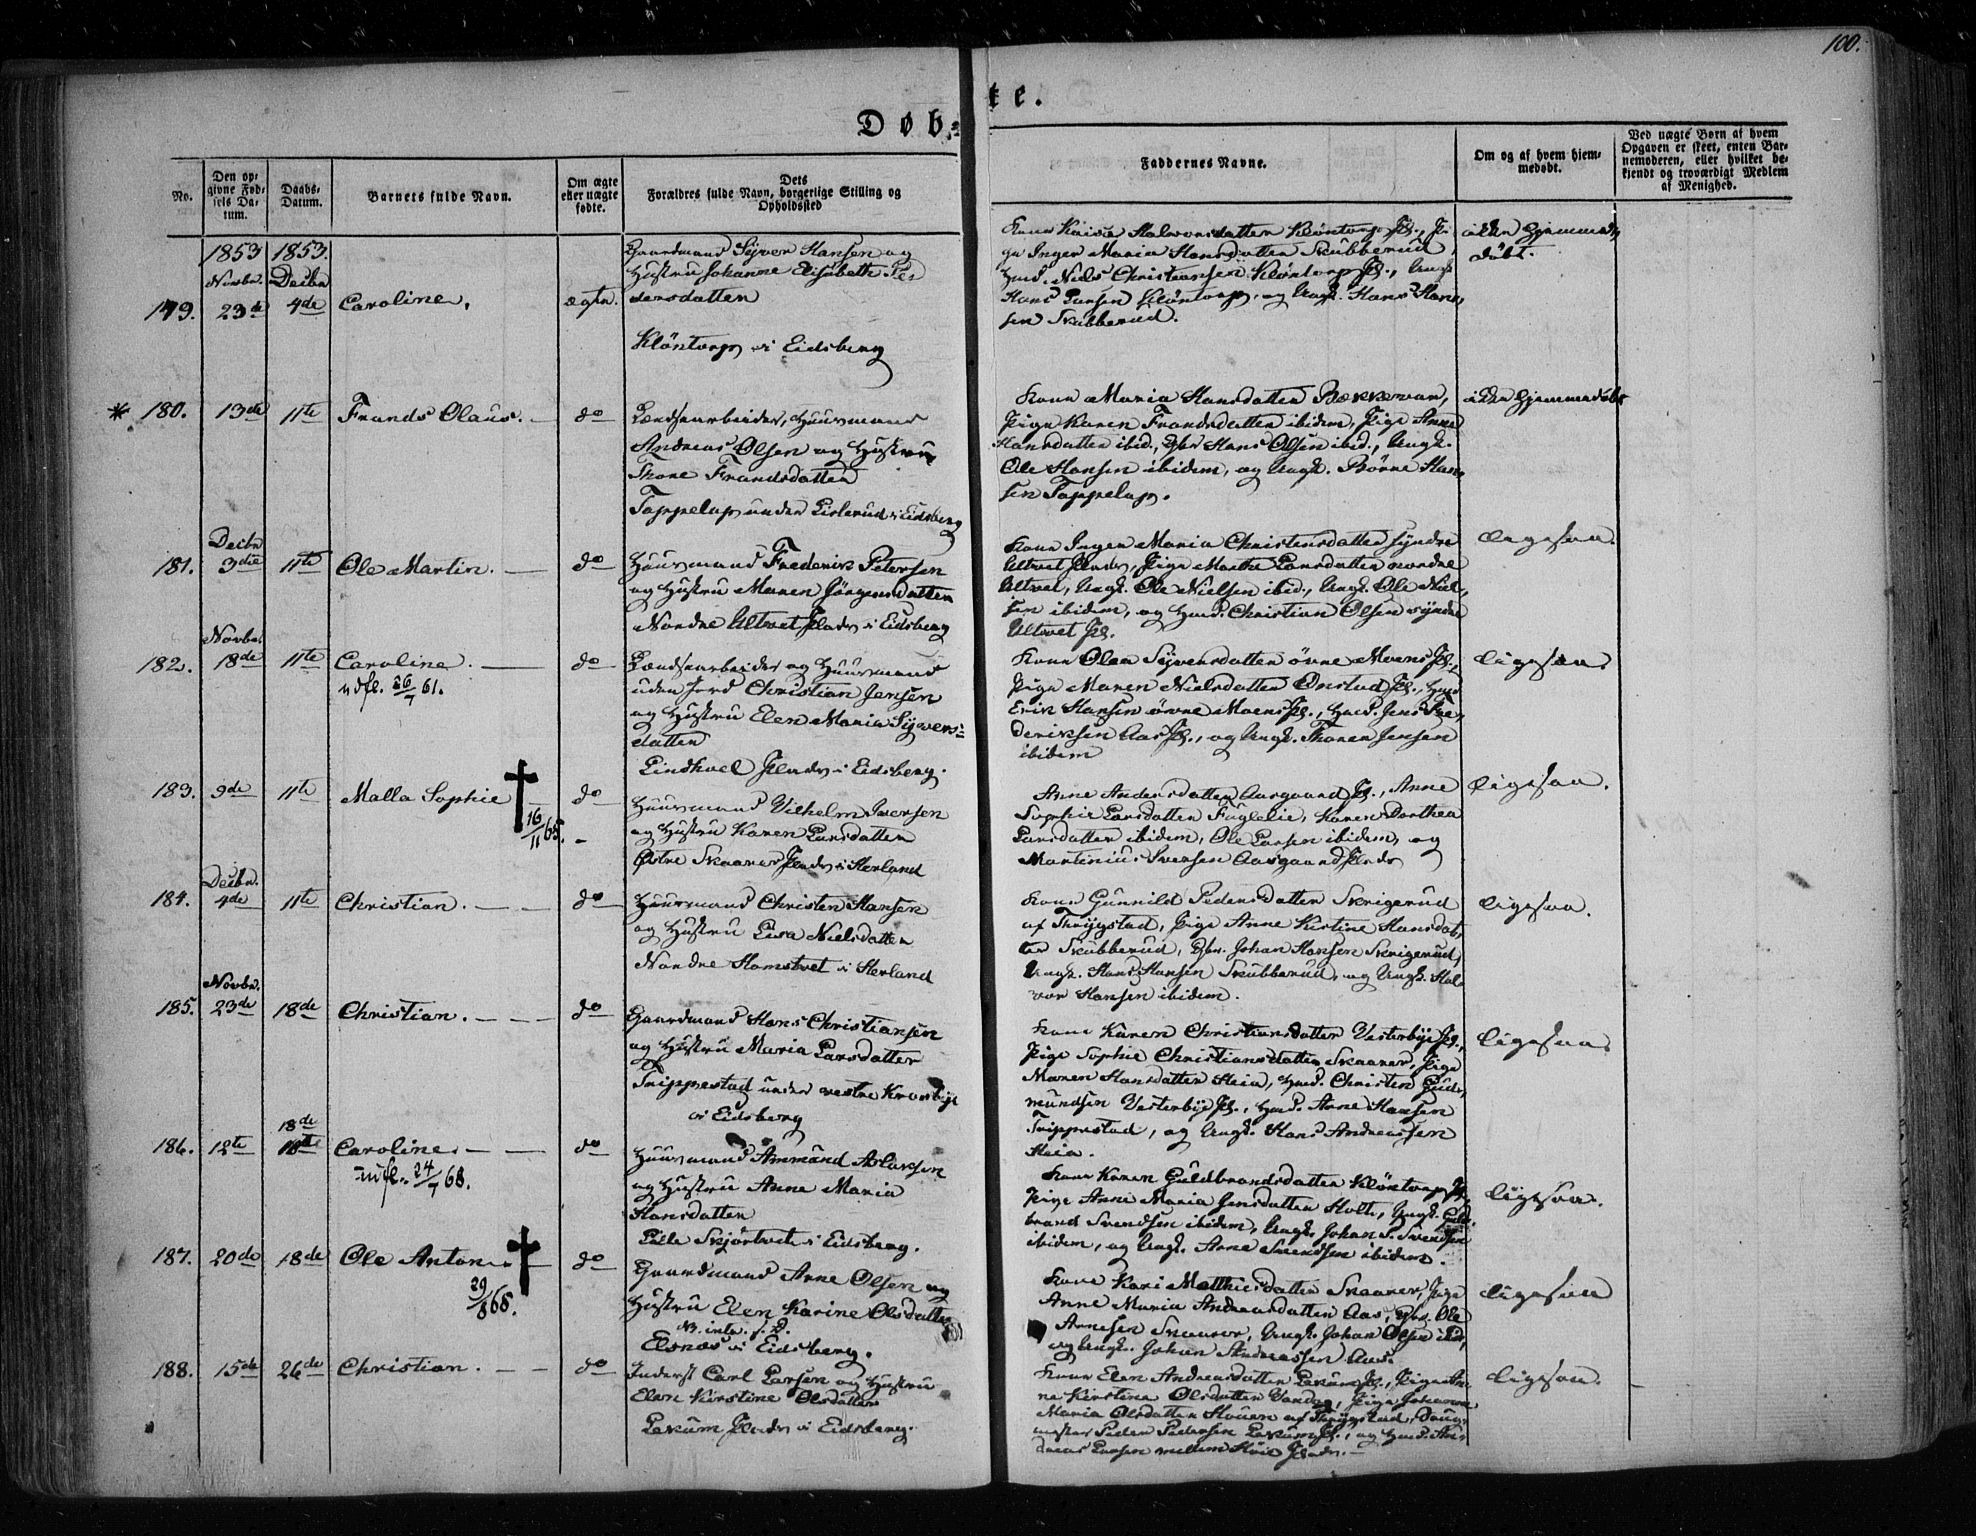 100.
Døb=
te.
No.
Den op-
givne Fød-
sels Da-
tum.
Daabs-
Datum.
Barnets fulde Navn.
Om ægte
eller uægte
fødte.
Dets
Forældres fulde Navn, borgerlige Stilling og
Opholdssted
Faddernes Navne.
Om og af hvem hjem-
medøbt.
Ved uægte Børn af hvem
Opgaven er skeet, enten Bar-
nemoderen, eller hvilket be-
kjendt og troværdigt Medlem
af Menighed.
1853 1853.
Novbr. Decbr.
179. 23de 4de Caroline. ægte.
Gaardmand Syver Hansen og
Hustru Johanne Elisabeth Pe
dersdatter
Klöntorp i Eidsberg
Kone Kaisa Halvorsdatter Klöntorp Pl., Pi-
ge Inger Maria Hansdatter Skubberud,
Hmd. Niels Christiansen Klöntorp Pl., Ungk.
Hans Larsen Klöntorp, og Ungk. Hans Han-
sen Skubberud.
ikke hjemme-
döbt.
* 180. 13de 11te Frands Olaus. do
Lændsearbeider, Huusmand
Andreas Olsen og Hustru
Thore Frandsdatter
Toppelup under Lislerud i Eidsberg
Kone Maria Hansdatter Bækkevar,
Pige Karen Frandsdatter ibidem, Pige Anne
Hansdatter ibid., Gbr Hans Olsen ibid., Ungk.
Ole Hansen ibidem, og Ungk. Börre Han-
sen Toppelup.
ikke hjemmedöbt
Decbr
181. 3die 11te Ole Martin. do
Huusmand Frederik Petersen
og Hustru Maren Jörgensdatter
Nordre Ultvet Plads i Eidsberg
Kone Inger Maria Christensdatter syndre
Ultvet Plads, Pige Marthe Larsdatter nordre
Ultvet, Ungk. Ole Nielsen ibid., Ungk. Ole Niel-
sen ibidem, og Hmd. Christian Olsen syndre
Ultvet Pl.
Ligesaa.
Novbr.
182. 18de 11te Caroline. do
udfl. 26/7 61.
Lændsearbeider og Huusmand
uden Jord Christian Jensen
og Hustru Elen Maria Syvers=
datter
Lindhoel Plads i Eidsberg.
Kone Olea Syversdatter övre Moens Pl.,
Pige Maren Nielsdatter Onstad Pl., Hmd
Erik Hansen övre Moens Pl., Hmd. Jens Fre-
deriksen Aas Pl., og Ungk. Thorer Jensen
ibidem
Ligesaa.
183. 9de 11te Malla Sophie do
16/11 65.
Huusmand Vilhelm Iversen
og Hustru Karen Larsdatter
Østre Skaarer Plads i Herland
Anne Andersdatter Aasgaard Pl., Anne
Sophie Larsdatter Fuglelie, Karen Dorthea
Larsdatter ibidem, Ole Larsen ibidem, og
Martinius Iversen Aasgaard Plads
Ligesaa.
Decbr.
184. 4de 11te Christian. do
Huusmand Christen Hansen
og Hustru Lisa Nielsdatter
Nordre Homstvet i Herland
Kone Gunnild Pedersdatter Skrigerud
af Thrygstad, Pige Anne Kirstine Hansdat-
ter Skubberud, Gbr. Johan Hansen Skrigerud,
Ungk. Hans Hansen Skubberud, og Ungk. Hal-
vor Hansen ibidem.
Ligesaa.
Novbr.
185. 23de 18de Christian. do
Gaardmand Hans Christiansen
og Hustru Maria Larsdatter
Trippestad under vestre Krosbye
i Eidsberg
Kone Karen Christiansdatter Vesterbye Pl.,
Pige Sophie Christiansdatter Skaarer, Pige
Maren Hansdatter Heia, Hmd. Christen Gud-
mundsen Vesterbye Pl., Hmd. Arne Hansen
Trippestad, og Ungk. Hans Andreassen
Heia.
Ligesaa.
18de
186. 12te 18te Caroline. do
udfl. 24/7 68.
Huusmand Ammund Aslaksen
og Hustru Anne Maria
Hansdatter
Lille Skjörtvet i Eidsberg.
Kone Karen Guldbrandsdatter Klöntorp Pl.
Pige Anne Maria Jensdatter Holte, Ungk. Guld-
brand Svendsen ibidem, Ungk. Johan S. Svendsen
ibidem, og Ungk. Arne Svendsen ibidem.
Ligesaa.
187. 20de 18de Ole Anton do
29/8 65.
Gaardmand Arne Olsen og
Hustru Elen Karine Olsdatter
Elsnes i Eidsberg.
Kone Kari Matthisdatter Skaarer, Pige
Anne Maria Andreasdatter Aas, Gbr. Ole
Arnesen Skaarer, Ungk. Johan Olsen ibid.,
og Ungk. Johan Andreassen Aas.
Ligesaa
188. 15de 26de Christian. do
Inderst Carl Larsen og Hustru
Elen Kirstine Olsdatter
Lekum Plads i Eidsberg.
Kone Elen Andreasdatter Lekum Pl., Pige An-
ne Kirstine Olsdatter, Pige Johanne
Maria Olsdatter af Thrygstad,
Peder Pedersen Lekum Pl., og Hmd. An-
dreas Larsen mellem Höie Plads.
Ligesaa.